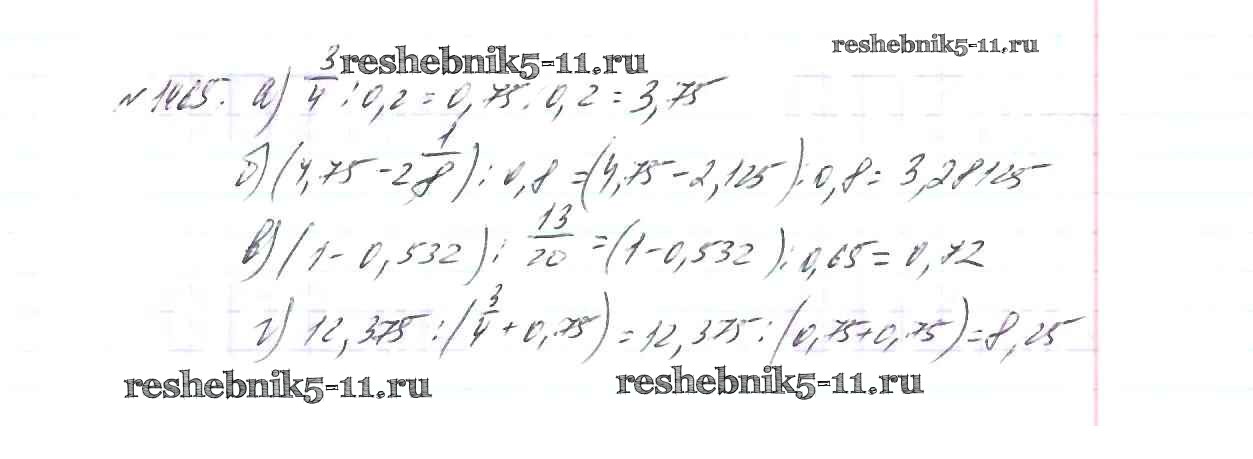 reshebnik5-11.ru
reshebnik5-11.ru
№1465. а) 3/4 : 0,2 = 0,75 : 0,2 = 3,75
б) (4,75 - 2 1/8) : 0,8 = (4,75 - 2,125) : 0,8 = 3,28125
в) (1 - 0,532) : 13/20 = (1 - 0,532) : 0,65 = 0,72
г) 12,375 : (3/4 + 0,75) = 12,375 : (0,75 + 0,75) = 8,25
reshebnik5-11.ru
reshebnik5-11.ru